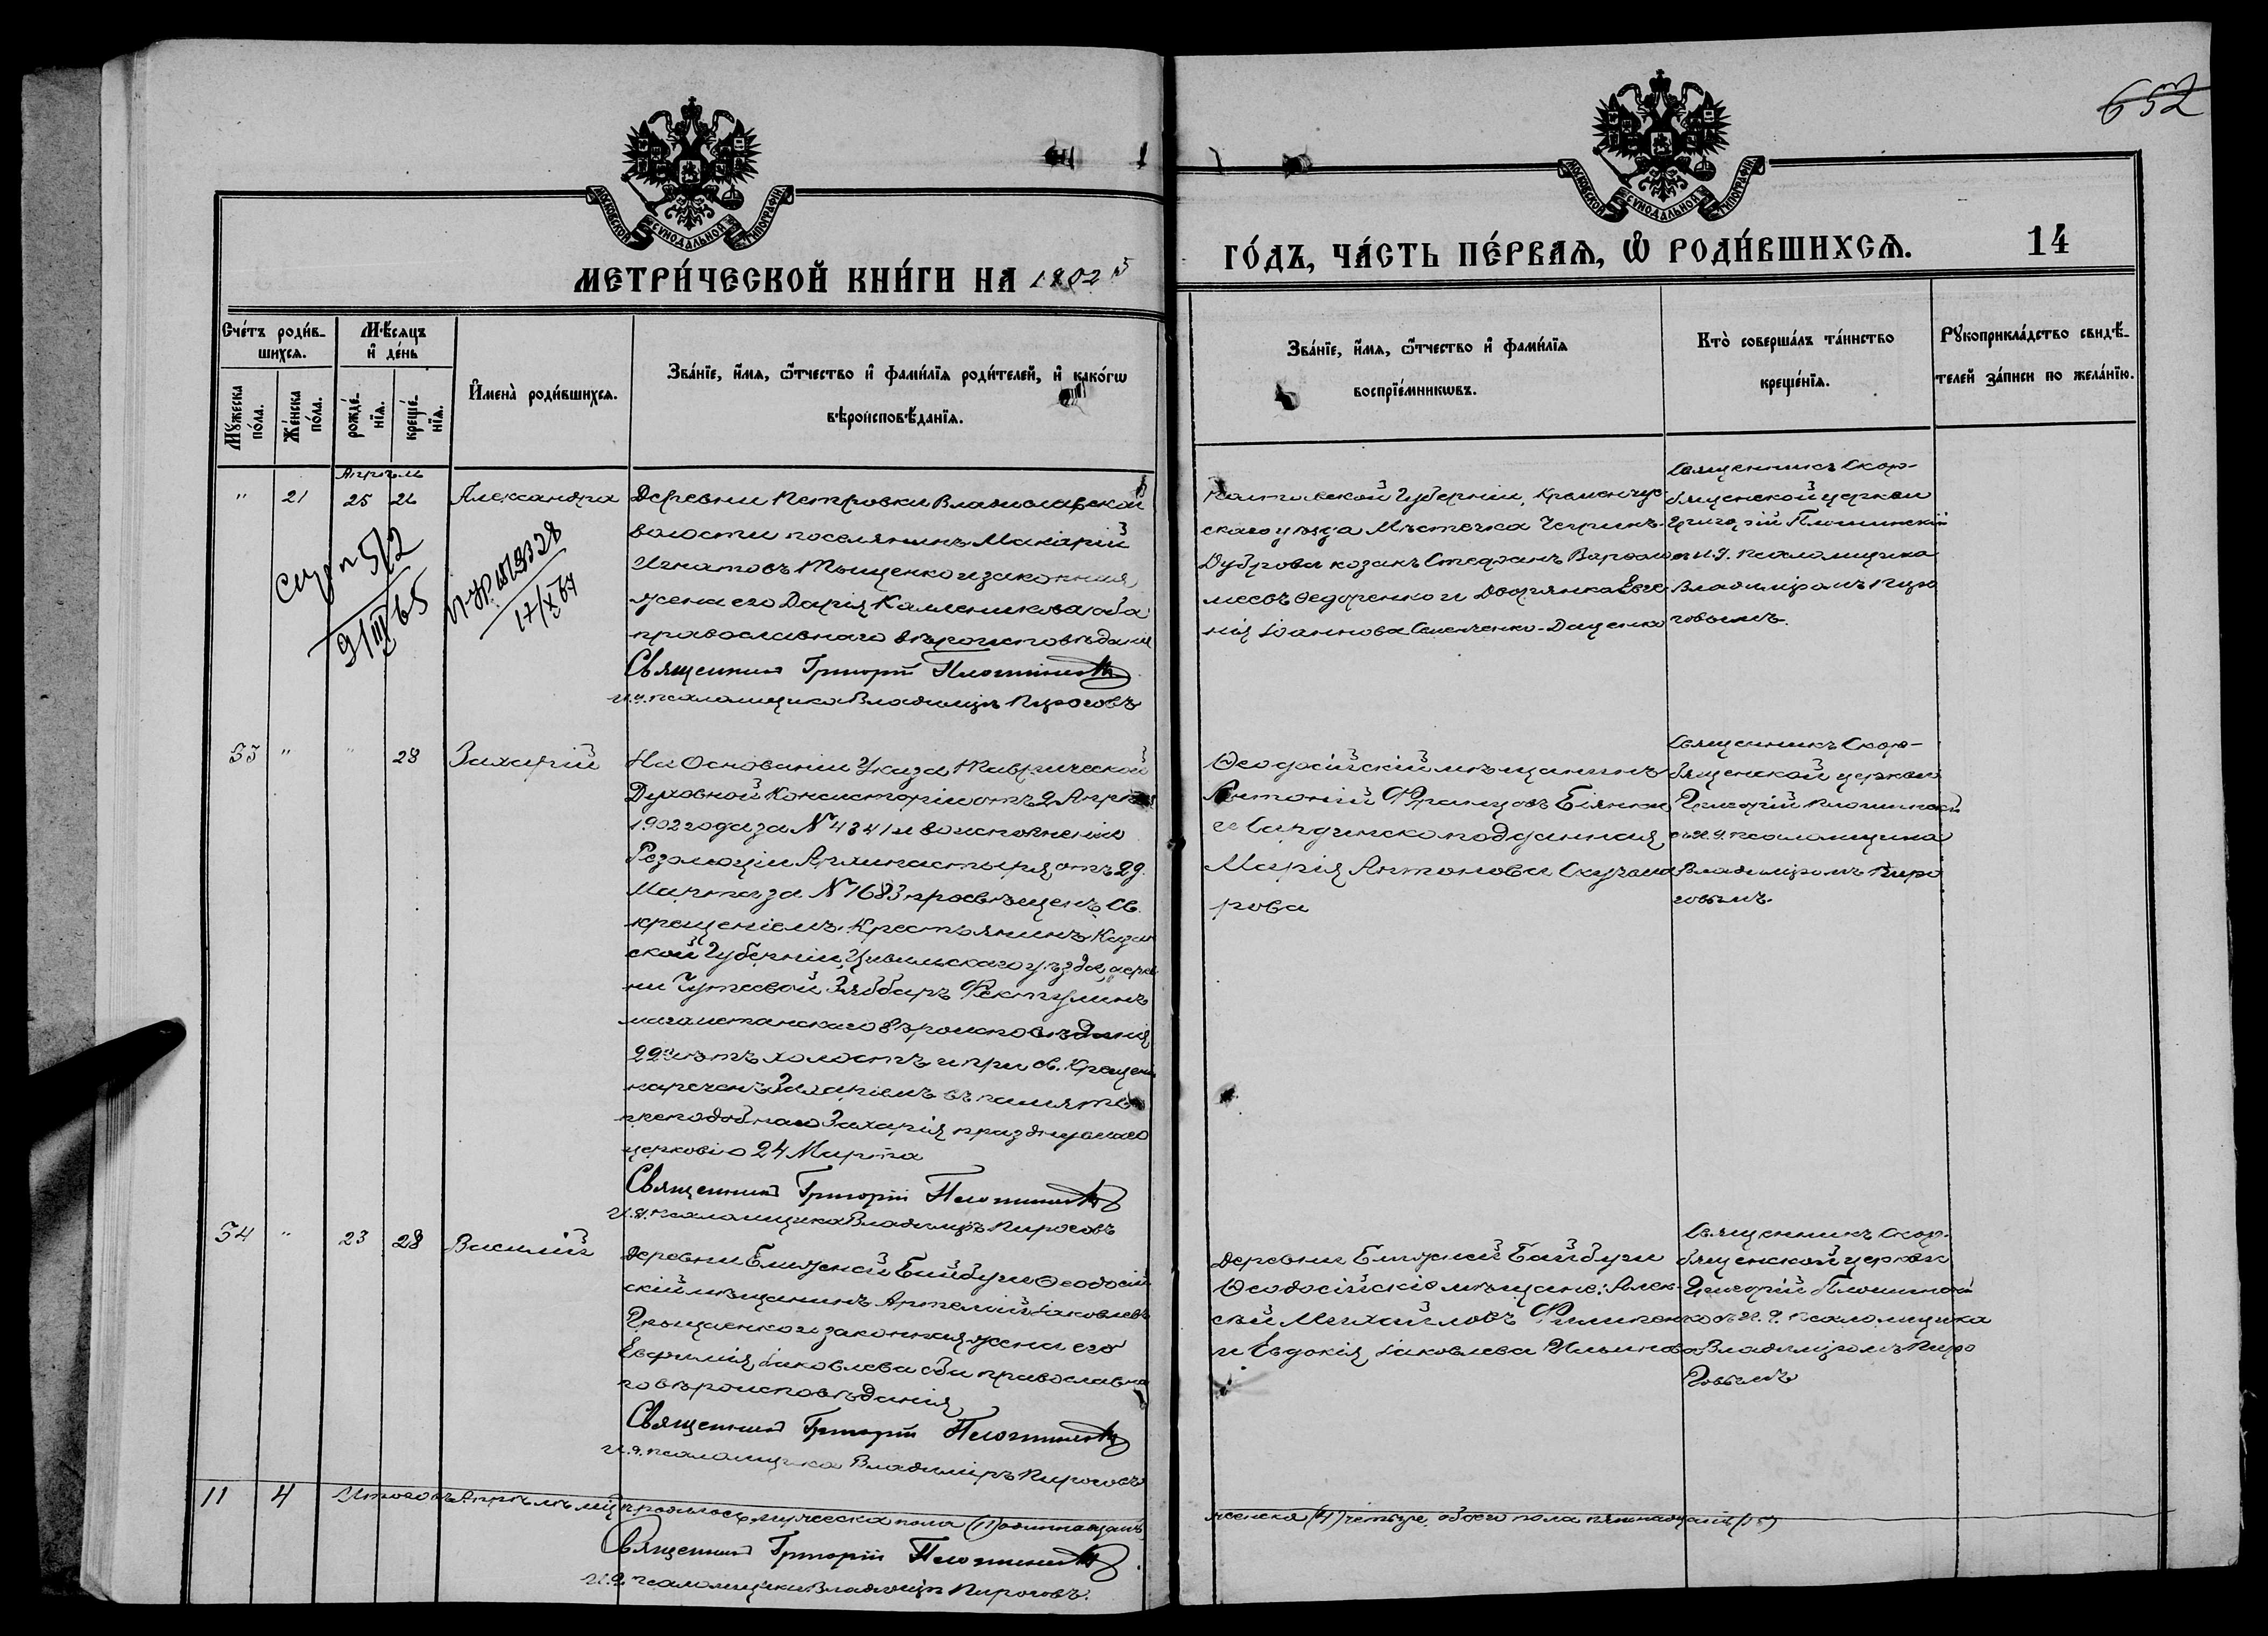 652
МОСКОВСКОЙ СѴНОДАЛЬНОЙ ТИПОГРАФІИ
МОСКОВСКОЙ СѴНОДАЛЬНОЙ ТИПОГРАФІИ
МЕТРИ́ЧЕСКОЙ КНИ́ГИ НА 1902
ГО́ДЪ, ЧА́СТЬ ПЕ́РВАѦ, Ѡ РОДИ́ВШИХСѦ.
14
Сче́тъ роди́в-
шихсѧ.
Мꙋ́жеска
по́ла.
Же́нска
по́ла.
Мѣ́сѧцъ
и҆ де́нь
рожде́-
нїѧ.
креще́-
нїѧ.
И҆мена̀ роди́вшихсѧ.
Зва́нїе, и҆́мѧ, ѻ҆́тчество и҆ фами́лїѧ роди́телей, и҆ како́гѡ
вѣроисповѣ́данїѧ.
Зва́нїе, и҆́мѧ, ѻ҆́тчество и҆ фами́лїѧ
воспрїе́мникѡвъ.
Кто̀ соверша́лъ та́инство
креще́нїѧ.
Рꙋкоприкла́дство свидѣ́-
телей за́писи по жела́нїю.
Апрѣль
" 21 25 26 Александра
Деревни Петровки Владиславской
волости поселянинъ Макарій
Игнатовъ Тыщенко и законная
жена его Дарія Калленикова оба
православнаго вѣроисповѣданія
Священникъ Григорій Плотинскій
И.д. псаломщика Владиміръ Пироговъ
Полтавской Губерніи, Кременчуг-
скаго уѣзда Мѣстечка
Дуброва козакъ Стефанъ Варѳоло
меевъ Ѳедоренко и Дворянка Евге
нія Іоаннова Семенченко-Даценко
Священникъ Скор-
бященской церкви
Григорій Плотинскій
съ И.д. псаломщика
Владиміромъ Пиро
говымъ.
5/2
9/III 65
17/X 64
33 " " 28 Захарій
На Основаніи Указа Таврической
Духовной Консисторіи отъ 2 Апрѣля
1902 года за № 4341 и во исполненіе
Резолюціи Архипастыря отъ 29
Марта за № 1683 просвѣщенъ Св.
крещеніемъ Крестьянинъ Казан
ской Губерніи, Цивильскаго уѣзда, дерев
ни Чутеевой Зяббаръ Фектулинъ
магометанскаго вѣроисповѣданія
22 лѣтъ холостъ и при св. Крещеніи
нареченъ Захаріемъ въ память
преподобнаго Захарія празднуемаго
церковію 24 Марта
Священникъ Григорій Плотинскій
И.д. псаломщика Владиміръ Пироговъ
Ѳеодосійскій мѣщанинъ
Антоній Францовъ Біянки
и Сардинско подданная
Марія Антонова
рова
Священникъ Скор-
бященской церкви
Григорій Плотинскій
съ И.д. псаломщика
Владиміромъ Пиро
говымъ.
34 " 23 28 Василій
деревни Ближней Байбуги Ѳеодосій
скій мѣщанинъ Артемій Іаковлевъ
Грыщенко и законная жена его
Евфимія Іаковлева оба православна
го вѣроисповѣданія
Священникъ Григорій Плотинскій
И.д. псаломщика Владиміръ Пироговъ
деревни Ближней Байбуги
Ѳеодосійскіе мѣщане: Алек-
сѣй Михайловъ Филипенко
и Евдокія Іаковлева Ильинова
Священникъ Скор-
бященской церкви
Григорій Плотинскій
съ И.д. псаломщика
Владиміромъ Пиро
говымъ
11 4 Итого въ Апрѣлѣ м-цѣ родилось мужеска пола (11) одиннадцать
женска (4) четыре, обоего пола пятнадцать (15)
Священникъ Григорій Плотинскій
И.д. псаломщика Владиміръ Пироговъ.